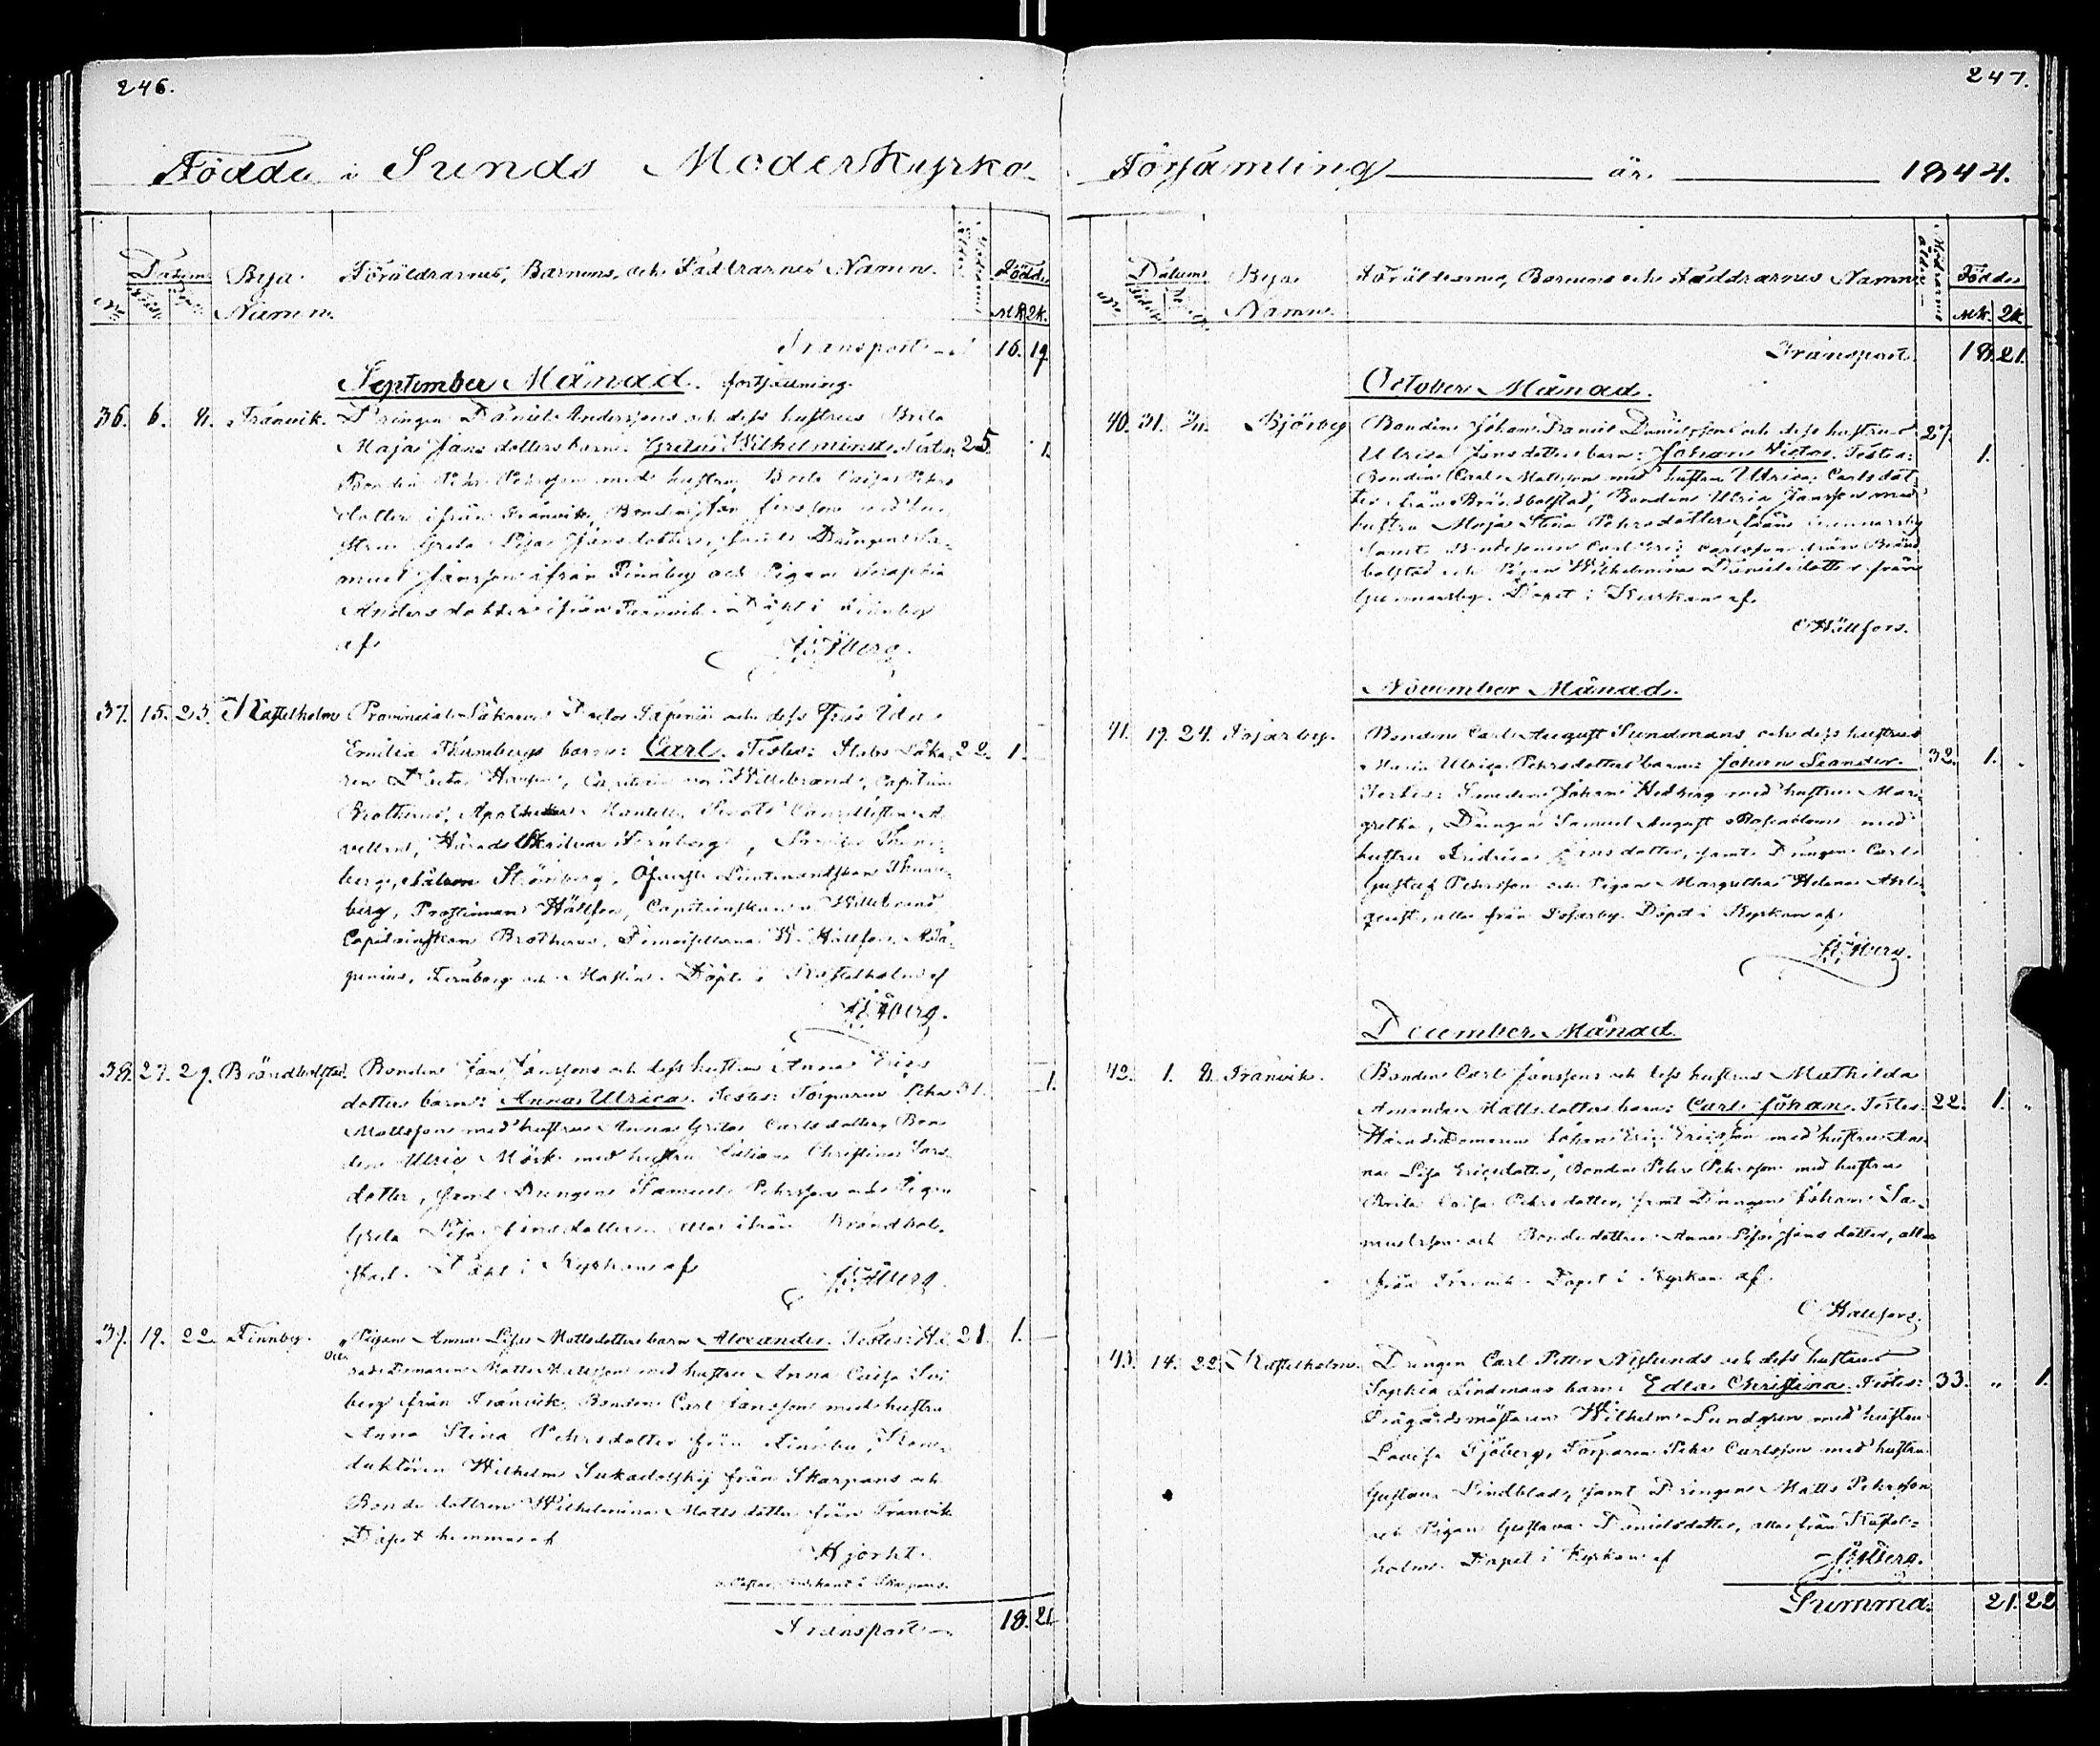 246.
Födde i Sunds Moderkyrko
Datum Bya Föräldrarnes, Barnens, och Faddrarnes Namn. Födde
Namn. Mk. 2k.
Transport 16. 19.
September Månad. fortsättning.
36. 6. 8. Tranvik. Drängen Daniel Anderssons och dess hustrus Brita
Maja Jansdotters barn: Greta Wilhelmina. Testes: 25. 1.
Bonden Pehr Pehrsson med hustru Brita Caisa Pehrs
dotter ifrån Tranvik, Bonden Jan Jansson med hu
stru Greta Lisa Jansdotter, samt Drängen Sa-
muel Jansson ifrån Finnby och Pigan Seraphia
Andersdotter ifrån Tranvik. Döpt i Finnby
af
Sjöberg.
37. 15. 23. Kastelholm Provincial Läkaren Doctor och dess Fru Ida
Emilia Thunebergs barn: Carl. Testes: Stabs Läka- 22. 1.
ren Doctor Capitain von Willebrand, Capitain
Brotherus, Apothekare Senats Cancellisten A-
Härads Skrifvare Fernborg, Thune-
berg, Strömberg, Öfverste Lieutenantskan Thune-
berg, Prostinnan Hällfors, Capitainskan v. Willebrand
Capitainskan Brotherus, Demoisellerna W. Hällfors,
Fernborg och Döpt i Kastelholm af
Sjöberg.
38. 27. 29. Brändbolstad. Bonden Jan Janssons och dess hustrus Anna Erics
dotters barn: Anna Ulrica. Testes: Torparen Pehr 31. 1.
Mattsson med hustru Anna Greta Carlsdotter, Bon
den Ulric Mörk med hustru Juliana Christina Lars-
dotter, samt Drängen Samuel Pehrsson och Pigan
Greta Lisa Jansdotter. Alla ifrån Brändbol-
stad. Döpt i Kyrkan af
Sjöberg.
39. 19. 22. Finnby. Pigan Anna Lisa Mattsdotters barn Alexander. Testes: Hä 21. 1.
radsdomaren Matts Mattsson med hustru Anna Caisa
berg från Tranvik, Bonden Carl Jansson med hustru
Anna Stina Pehrsdotter från Finnby, Kon-
duktören Wilhelm Sukadolskij från Skarpans och
Bondedottren Wilhelmina Mattsdotter från Tranvik
Döpt hemma af
Hjorht.
Pastor i Skarpans.
Transport 18. 21.
247.
Församling år 1844.
Datum Bya Föräldrarnes, Barnens och Faddrarnes Namn Moderns ålder Födde
Namn. Mk. 2k
Transport 18. 21.
October Månad.
40. 31. Björby Bonden Johan Daniel Danielssons och dess hustrus 27.
Ulrica Jansdotters barn: Johan Victor. Testes: 1.
Bonden Carl Mattsson med hustru Ulrica Carlsdot
ter från Brändbolstad, Bonden Ulric Jansson med
hustru Maja Stina Pehrsdotter från Gunnarsby
samt Bondesonen Carl Eric Carlsson från Bränd
bolstad och Pigan Wilhelmina Danielsdotter från
Gunnarsby. Döpt i Kyrkan af
C Hällfors.
November Månad.
41. 19. 24. Tosarby. Bonden Carl August Sundmans och dess hustrus
Maria Ulrica Pehrsdotters barn: Johan Leander. 32. 1.
Testes: Smeden Johan Hedberg med hustru Mar-
gretha, Drängen Samuel August med
hustru Fredrica Jansdotter, samt Drängen Carl
Gustaf Pehrsson och Pigan Margretha Helena Ahl-
quist, alla från Tosarby. Döpt i Kyrkan af
Sjöberg.
December Månad.
42. 1. 8. Tranvik. Bonden Carl Janssons och dess hustrus Mathilda
Amanda Mattsdotters barn: Carl Johan. Testes: 22. 1. "
Häradsdomaren Johan Eric Ericsson med hustru An-
na Lisa Ericsdotter, Bonden Pehr Pehrsson med hustru
Brita Caisa Pehrsdotter, samt Drängen Johan Sa-
muelsson och Bondedottren Anna Lisa Jansdotter, alla
från Tranvik. Döpt i Kyrkan af
C Hällfors.
43. 14. 22. Kastelholm. Drängen Carl Petter Nyslunds och dess hustrus
Sophia Lindmans barn: Edla Christina. Testes: 33. " 1.
Trägårdsmästaren Wilhelm Lundgren med hustru
Lovisa Sjöberg, Torparen Pehr Carlsson med hustru
Gustava Lindblad, samt Drängen Matts Pehrsson
och Pigan Gustava Danielsdotter, alla från Kastel-
holm. Döpt i Kyrkan af Sjöberg.
Summa. 21. 22